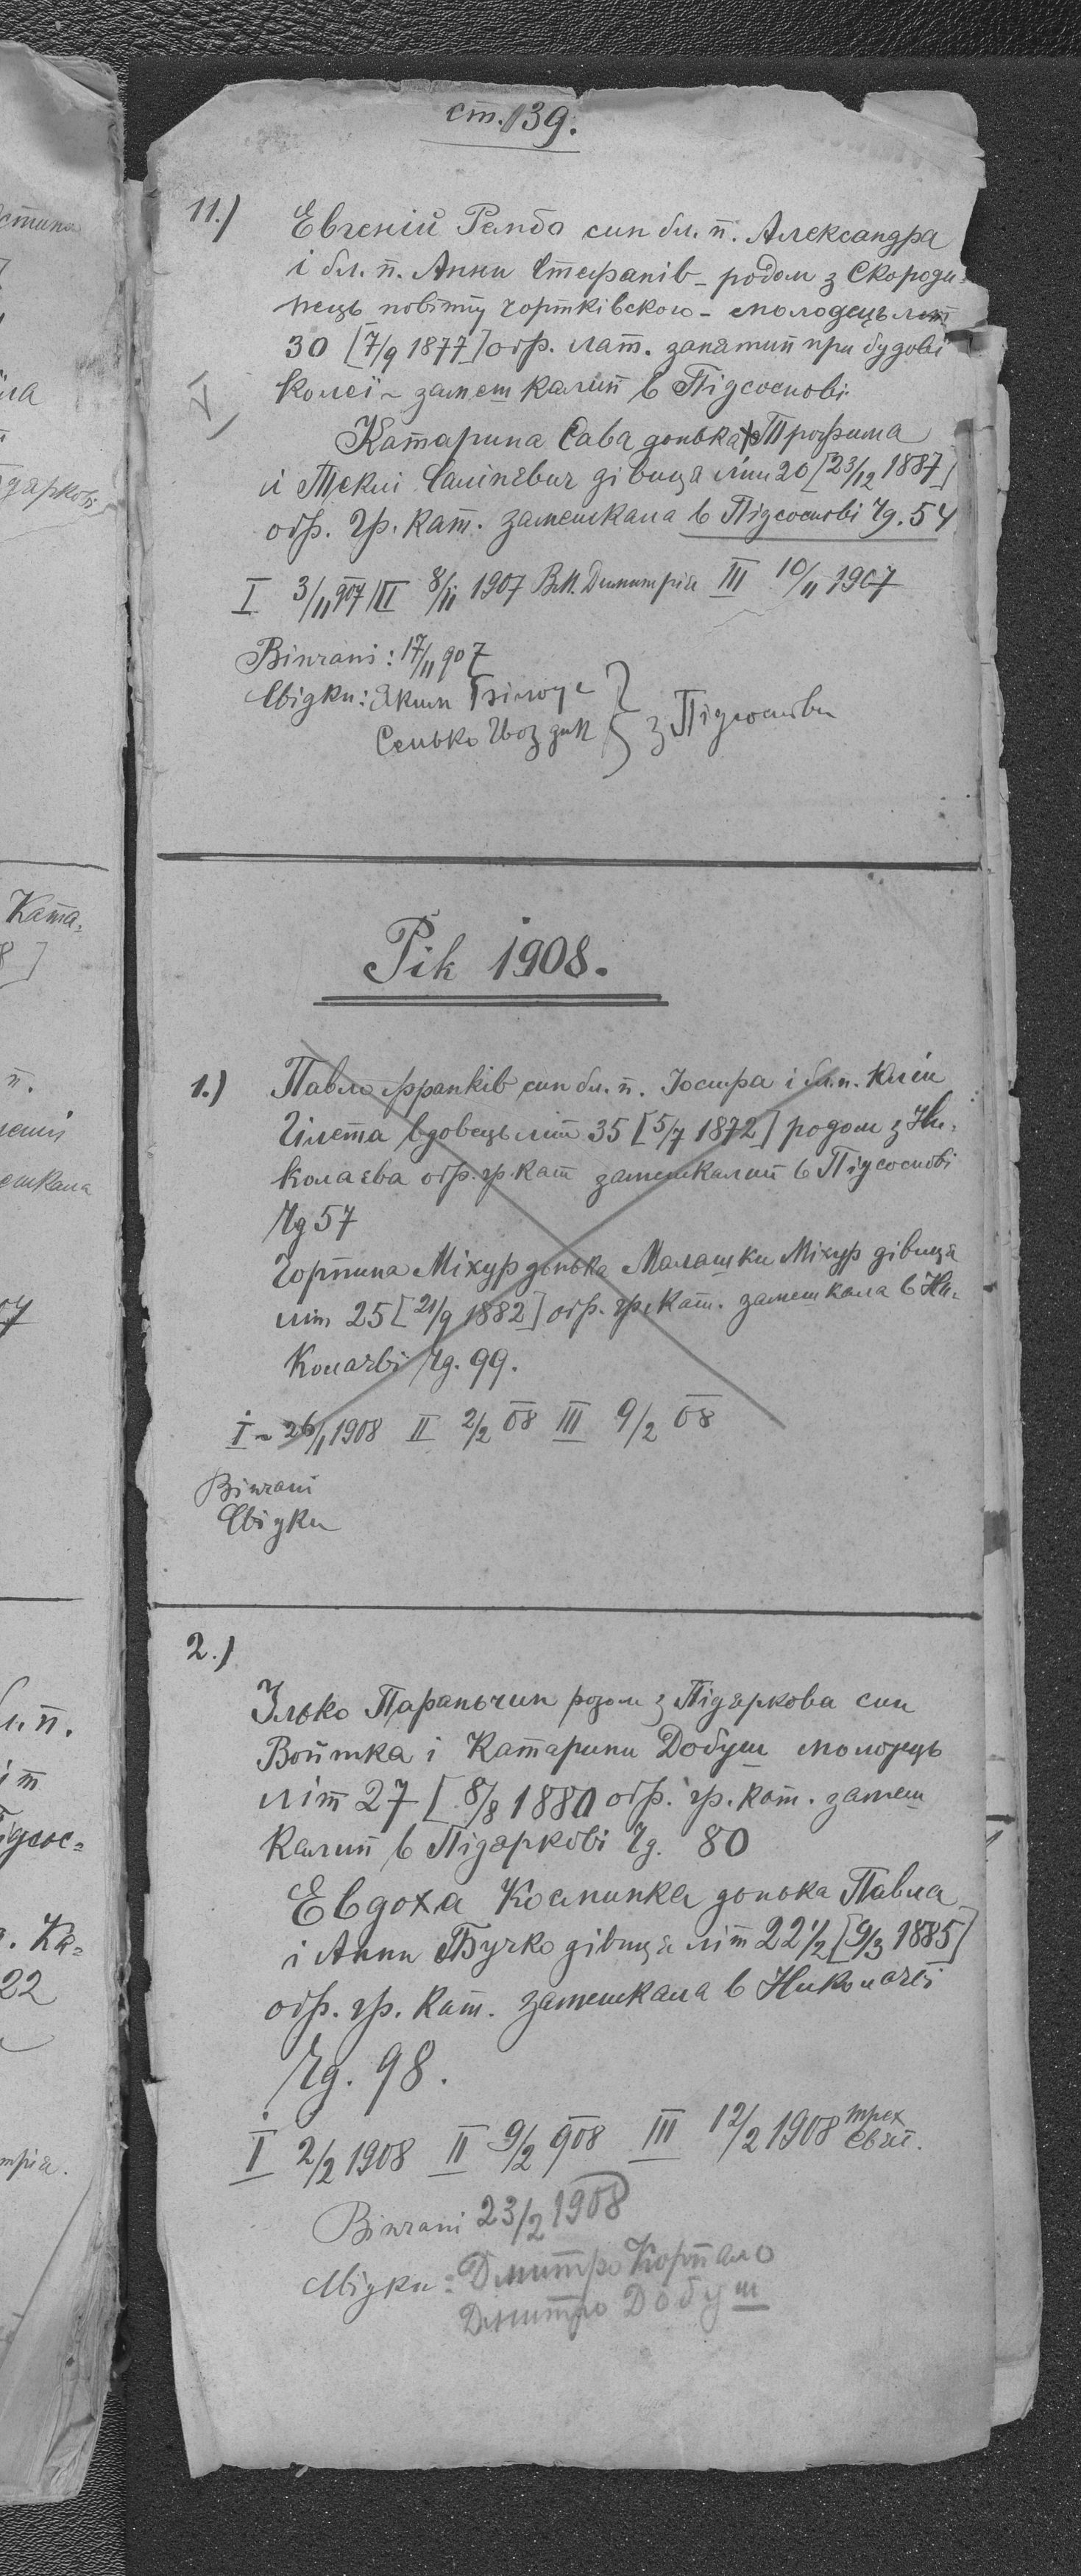 ст. 139.
11.) Евгеній Рембо син бл. п. Александра
і бл. п. Анни Стефанів - родом з Скороди-
нець повіту чортківского - молодець літ
30 [7/9 1877] обр. лат. занятий при будові
колеї - замешкалий в Підсоснові
Катарина Сава донька Трофима
і Теклі дівиця літ 20 [23/12 1887]
обр. гр. кат. замешкала в Підсоснові Чд. 54
I 3/11 907 II 8/11 1907 Вм. Димитрія III 10/11 1907
Вінчані: 17/11 907
Свідки: Яким
Сенько Гвоздик } з Підсоснова
Рік 1908.
1.) Павло Франків син бл. п. Йосифа і бл. п. Юлії
Гілета вдовець літ 35 [5/7 1872] родом з Ни-
колаєва обр. гр. кат замешкалий в Підсоснові
Чд 57
Горпина Міхур донька Малашки Міхур дівиця
літ 25 [21/9 1882] обр. гр. кат. замешкала в Ни-
колаєві Чд. 99.
I - 26/1 1908 II 2/2 08 III 9/2 08
Вінчані
Свідки
2.)
Ілько Параньчин родом з Підяркова син
Войтка і Катарини Добуш молодець
літ 27 [8/8 1880 обр. гр. кат. замеш
калий в Підяркові Чд. 80
Евдоха Косминка донька Павла
і Анни Бучко дівиця літ 22 1/2 [9/3 1885]
обр. гр. кат. замешкала в Николаєві
Чд. 98.
I 2/2 1908 II 9/2 908 III 12/2 1908 трех Свят.
Вінчані 23/2 1908
Свідки: Дмитро Кортало
Дмитро Добуш